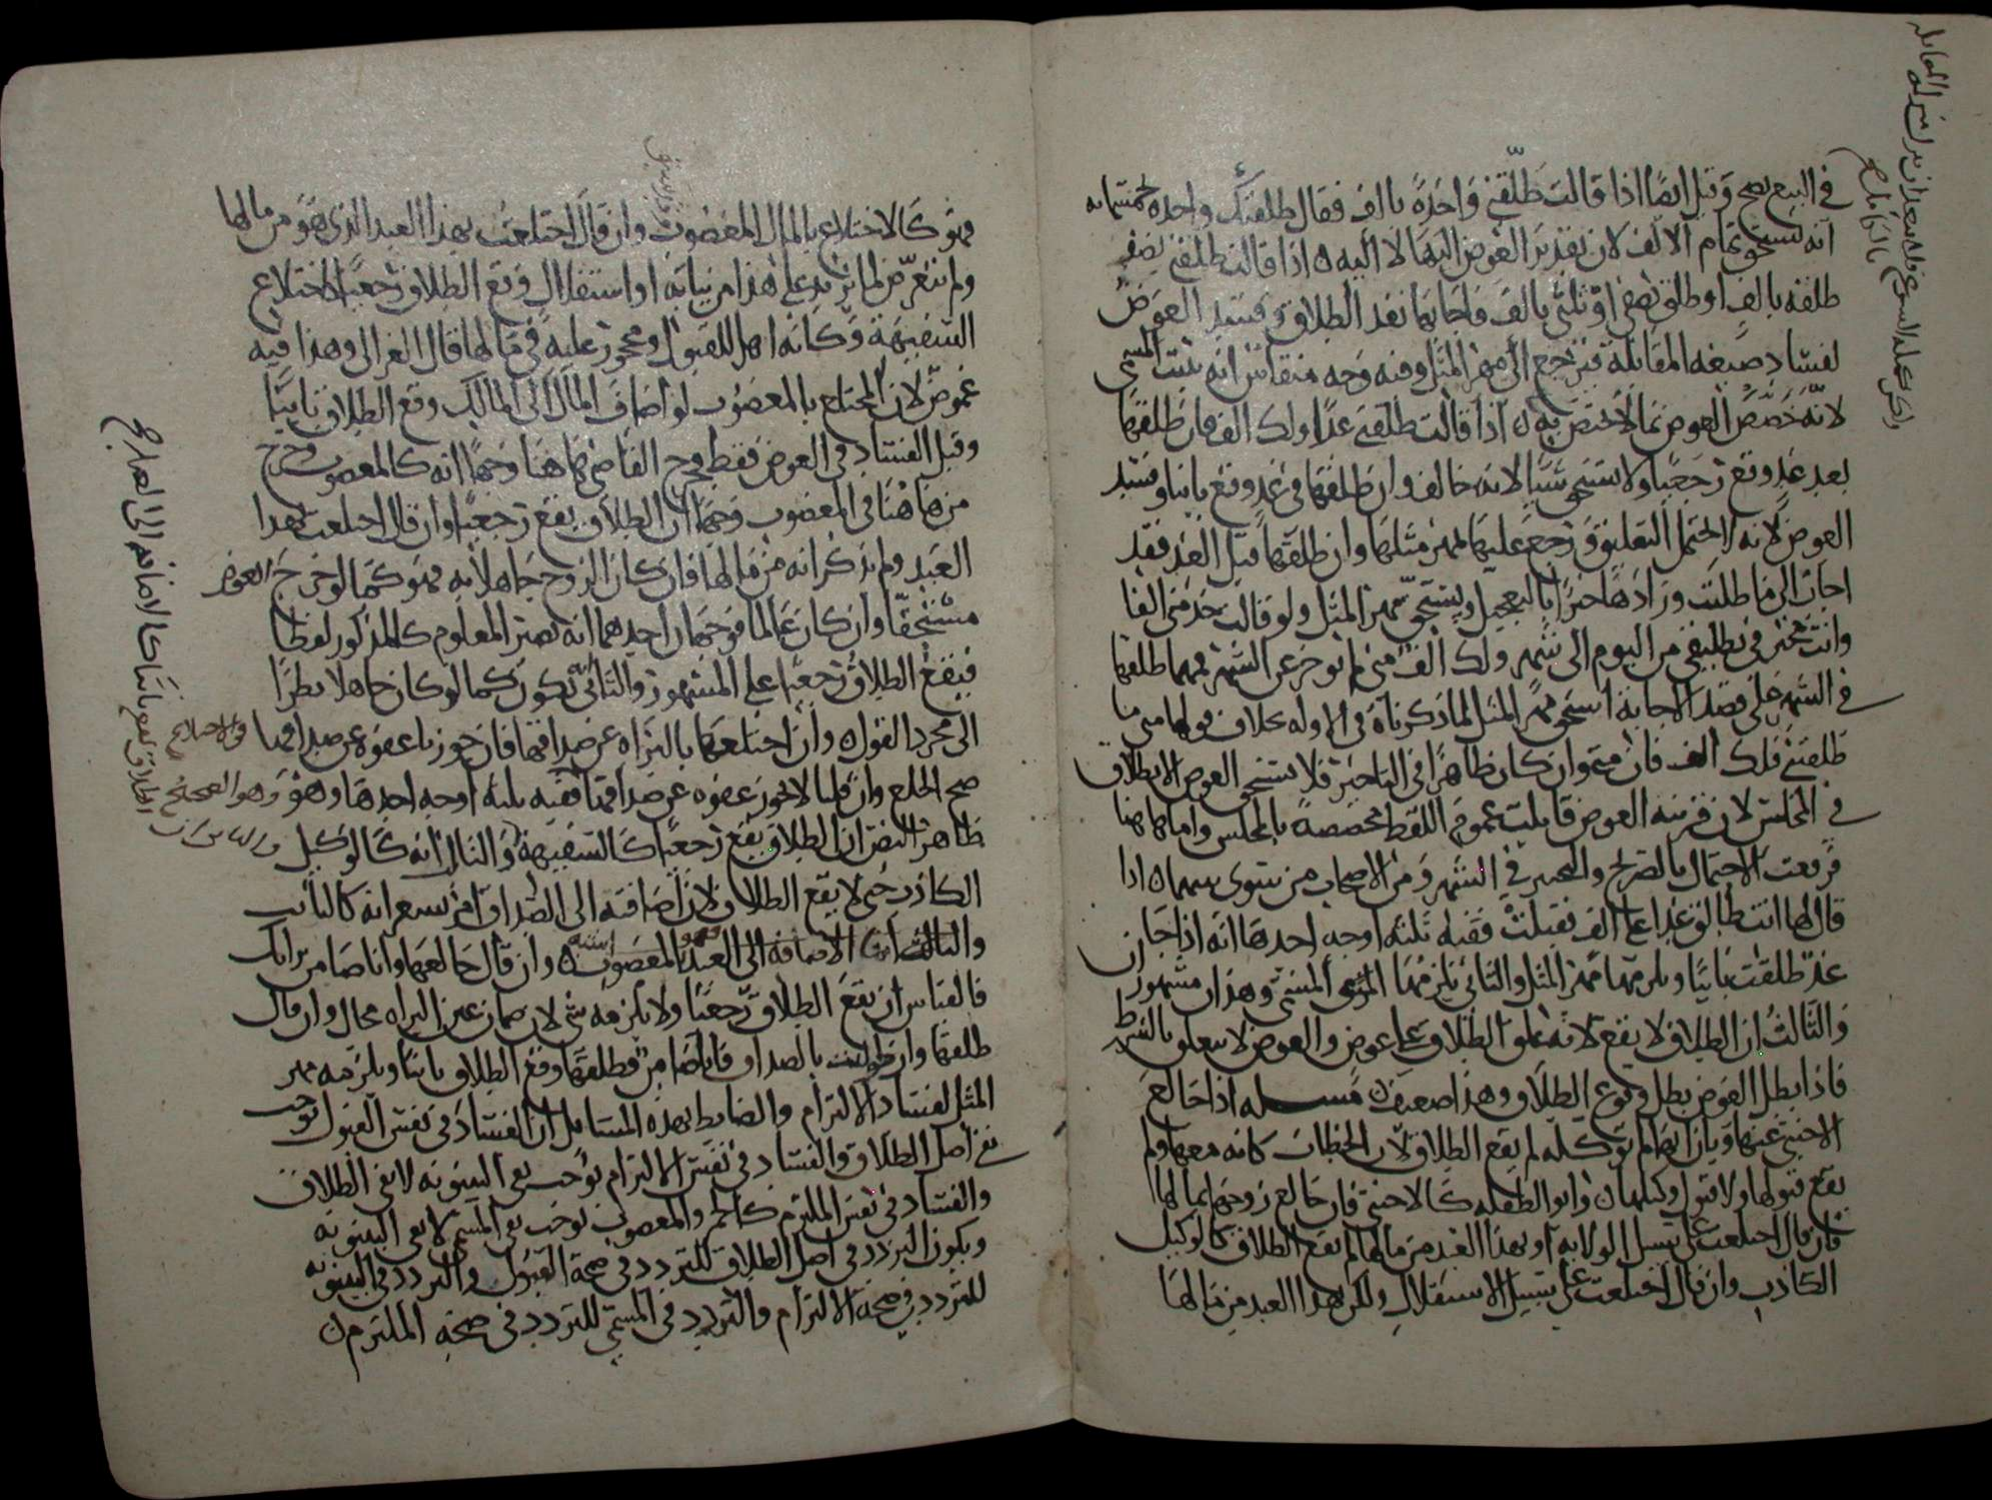 في البيع يصح وقيل ايضا اذا قالت طلقني واحدة بالف فقال طلقتك واحده بخمسمايه
انه يستحق تمام الالف لان تقدير العوض اليها لا اليه ه اذا قالت طلقني نصف
طلقه بالف او طلق نصفي او ثلثي بالف فاجابها نفذ الطلاق وفسد العوض
لفساد صيغه المقابلة فيرجع الى مهر المثل وفيه وجه منقاس انه يثبت المسمى
لانه خصص العوض بما لا يختص به ه اذا قالت طلقني غدا ولك الف فان طلقها
بعد غد وقع رجعيا ولا يستحق شيا لانه خالف وان طلقها في غد وقع باينا وفسد
العوض لانه لا يحتمل التعليق ورجع عليها بمهر مثلها وان طلقها قبل الغد فقد
اجاب الى ما طلبت وزادها خيرا بالتعجيل ويستحق مهر المثل ولو قالت خذ مني الفا
وانت مخير في تطليقي من اليوم الى شهر ولك الف مني لم توخر عن الشهر فمهما طلقها
في الشهر على قصد الاجابة استحق مهر المثل لما ذكرناه في الاوله بخلاف قولها متى ما
طلقتني فلك الف فان متى وان كان ظاهرا في التاخير فلا يستحق العوض الا بطلاق
في المجلس لان قرينه العوض قابلت عموم اللفظ مخصصة بالمجلس واما هاهنا
فرفعت الاحتمال بالتصريح والتخيير في الشهر ومن الاصحاب من يسوى بينهما ه اذا
قال لها انت طالق غدا على الف فقبلت ففيه ثلثه اوجه احدها انه اذا جا
غد طلقت باينا ويلزمها مهر المثل والثاني يلزمها المسمى وهذان مشهوران
والثالث ان الطلاق لا يقع لانه علق الطلاق على عوض والعوض لا يتعلق بالشرط
فاذا بطل العوض بطل وقوع الطلاق وهذا ضعيف ه مسله اذا خالع
الاجنبي عنها وبان انها لم توكله لم يقع الطلاق لان الخطاب كانه معها ولم
يقع قبولها ولا قبول وكيلها ه وابو الطفله كالاجنبي فان خالع زوجها بمالها
فان قال اختلعت على سبيل الولايه او بهذا العبد من مالها لم يقع الطلاق كالوكيل
الكاذب وان قال اختلعت على سبيل الاستقلال ولكن بهذا العبد من مالها
فهو كالاختلاع بالمال المغصوب وان قال اختلعت بهذا العبد الذي هو من مالها
ولم يتعرض لما يزيد على هذا من نيابه او استقلال وقع الطلاق رجعيا كاختلاع
السفيهة وكانه اهل للقبول ومحجور عليه في مالها قال الغزالي وهذا فيه
غموض لان المختلع بالمغصوب لو اضاف المال الى المالك وقع الطلاق باينا
وقيل الفساد في العوض فقط فخرج القاضي هاهنا وجها انه كالمغصوب وخرج
من هاهنا في المغصوب وجها ان الطلاق يقع رجعيا وان قال اختلعت بهذا
العبد ولم يذكر انه من مالها فان كان الزوج جاهلا به فهو كما لو خرج العوض
مستحقا وان كان عالما فوجهان احدهما انه يصير المعلوم كالمذكور لفظا
فيقع الطلاق رجعيا على المشهور والثاني انه يكون كما لو كان جاهلا نظرا
الى مجرد القول ه وان اختلعها بالبراه عن صداقها فان جوزنا عفوه عن صداقها
صح الخلع وان قلنا لا يجوز عفوه عن صداقها ففيه ثلثه اوجه احدها وهو وهو الصحيح
ظاهر النص ان الطلاق يقع رجعيا كالسفيهة والثاني انه كالوكيل
الكاذب حتى لا يقع الطلاق لان اضافته الى الصداق امر يشعر انه كالنايب
والثالث ان الاضافه الى العبد المغصوب ه وان قال خالعها وانا ضامن براتك
فالقياس ان يقع الطلاق رجعيا ولا يلزمه شي لان ضمان عين البراه محال وان قال
طلقها وان طولبت بالصداق فانا ضامن فطلقها وقع الطلاق باينا ويلزمه مهر
المثل لفساد الالتزام والضابط بهذه المسايل ان الفساد في نفس القبول يوجب
نفي اصل الطلاق والفساد في نفس الالتزام يوجب نفي البينونه لا نفي الطلاق
والفساد في نفس الملتزم كالخمر والمغصوب يوجب نفي المسمى لا نفي البينونه
ويكون التردد في اصل الطلاق للتردد في صحة القبول والتردد في البينونه
للتردد في صحة الالتزام والتردد في المسمى للتردد في صحة الملتزم ه